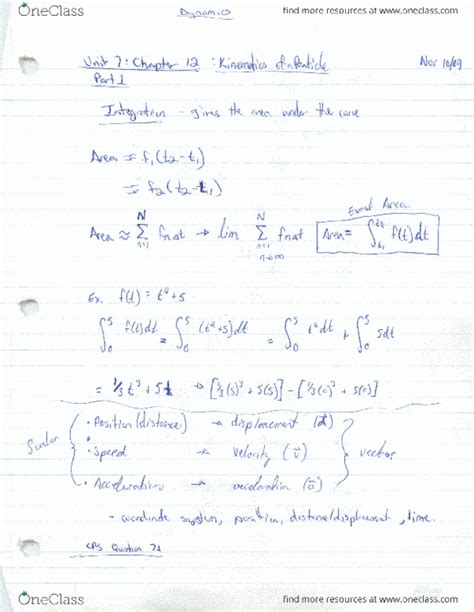 OneClass
find more resources at www.oneclass.com
Dynamics
Unit 7: Chapter 12 : Kinematics of a Particle
Nov 10/09
Part 1
Integration - gives the area under the curve
Area = f₁(t₂-t₁)
= f₂(t₂-t₁)
Exact Area
Area ≈ N Σ n=1 fnΔt → lim N Σ n=1 n→∞ fnΔt
Area = ∫t₁ t₂ f(t)dt
Ex. f(t) = t²+5
∫₀⁵ f(t)dt = ∫₀⁵ (t²+5)dt = ∫₀⁵ t²dt + ∫₀⁵ 5dt
= ⅓t³ + 5t → [⅓(5)³ + 5(5)] - [⅓(0)³ + 5(0)]
Scalar
• Position (distance) → displacement (d)
• Speed → velocity (v)
vectors
• Acceleration → acceleration (a)
- coordinate system, position, distance/displacement, time.
CPS Question 71
OneClass
find more resources at www.oneclass.com